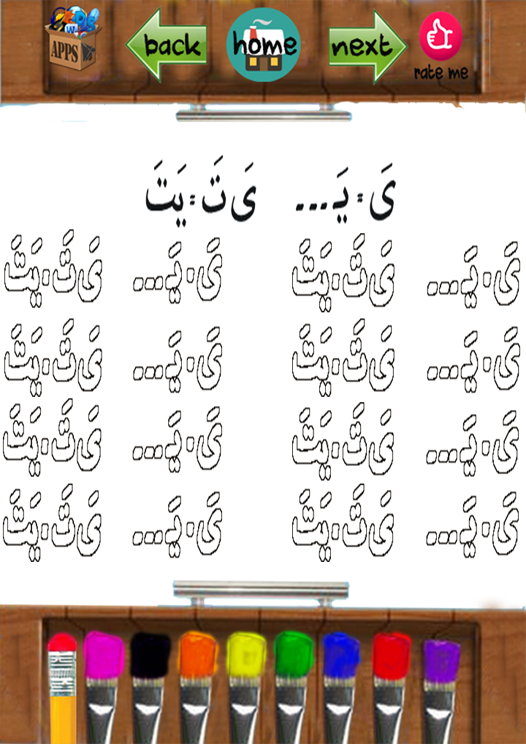 APPS back home next rate me
یَ = یَـ... یَ تَ = یَتَ
یَ = یَـ... یَ تَ = یَتَ یَ = یَـ... یَ تَ = یَتَ
یَ = یَـ... یَ تَ = یَتَ یَ = یَـ... یَ تَ = یَتَ
یَ = یَـ... یَ تَ = یَتَ یَ = یَـ... یَ تَ = یَتَ
یَ = یَـ... یَ تَ = یَتَ یَ = یَـ... یَ تَ = یَتَ